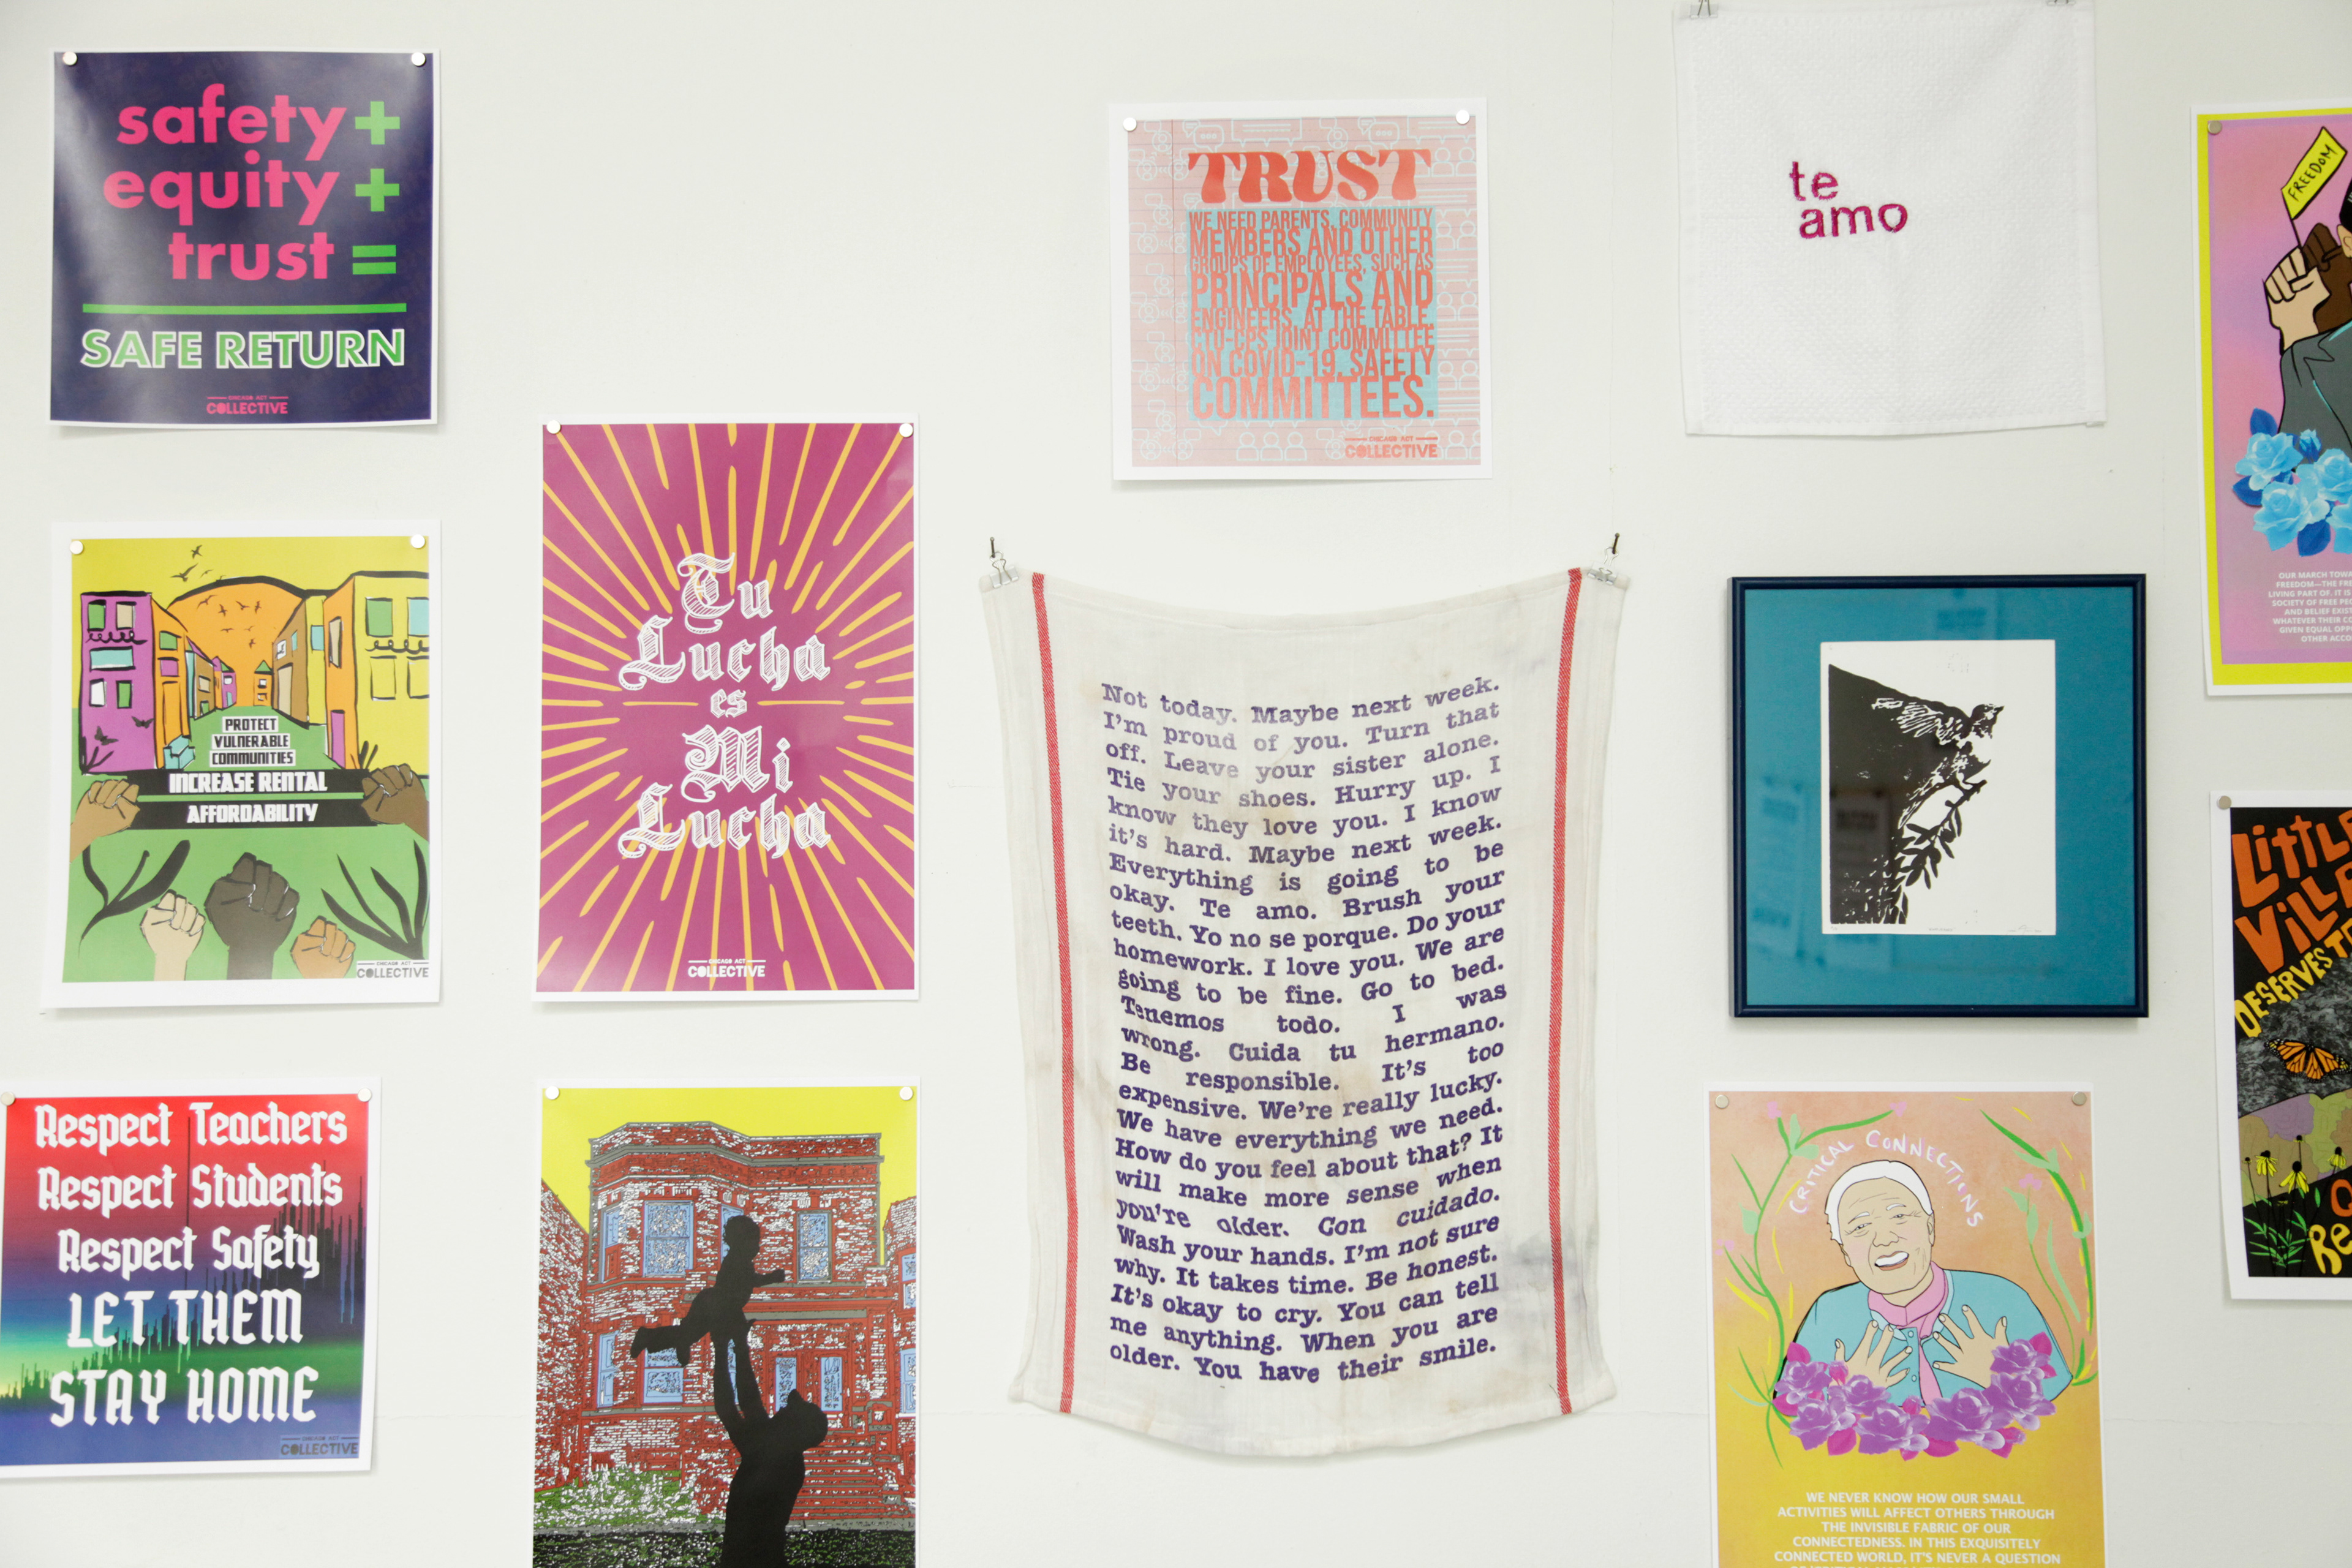 safety +
equity +
trust =
SAFE RETURN
CHICAGO ACT
COLLECTIVE
PROTECT
VULNERABLE
COMMUNITIES
INCREASE RENTAL
AFFORDABILITY
CHICAGO ACT
COLLECTIVE
Respect Teachers
Respect Students
Respect Safety
LET THEM
STAY HOME
CHICAGO ACT
COLLECTIVE
Tu
Lucha
es
Mi
Lucha
CHICAGO ACT
COLLECTIVE
TRUST
WE NEED PARENTS, COMMUNITY
MEMBERS AND OTHER
GROUPS OF EMPLOYEES, SUCH AS
PRINCIPALS AND
ENGINEERS, AT THE TABLE.
CTU-CPS JOINT COMMITTEE
ON COVID-19. SAFETY
COMMITTEES.
CHICAGO ACT
COLLECTIVE
Not today. Maybe next week.
I'm proud of you. Turn that
off. Leave your sister alone.
Tie your shoes. Hurry up. I
know they love you. I know
it's hard. Maybe next week.
Everything is going to be
okay. Te amo. Brush your
teeth. Yo no se porque. Do your
homework. I love you. We are
going to be fine. Go to bed.
Tenemos todo. I was
wrong. Cuida tu hermano.
Be responsible. It's too
expensive. We're really lucky.
We have everything we need.
How do you feel about that? It
will make more sense when
you're older. Con cuidado.
Wash your hands. I'm not sure
why. It takes time. Be honest.
It's okay to cry. You can tell
me anything. When you are
older. You have their smile.
te
amo
CRITICAL CONNECTIONS
WE NEVER KNOW HOW OUR SMALL
ACTIVITIES WILL AFFECT OTHERS THROUGH
THE INVISIBLE FABRIC OF OUR
CONNECTEDNESS. IN THIS EXQUISITELY
CONNECTED WORLD, IT'S NEVER A QUESTION
FREEDOM
OUR MARCH
FREEDOM—THE
LIVING PART OF. IT IS
SOCIETY OF FREE
AND BELIEF
WHATEVER THEIR
GIVEN EQUAL
OTHER
DESERVES